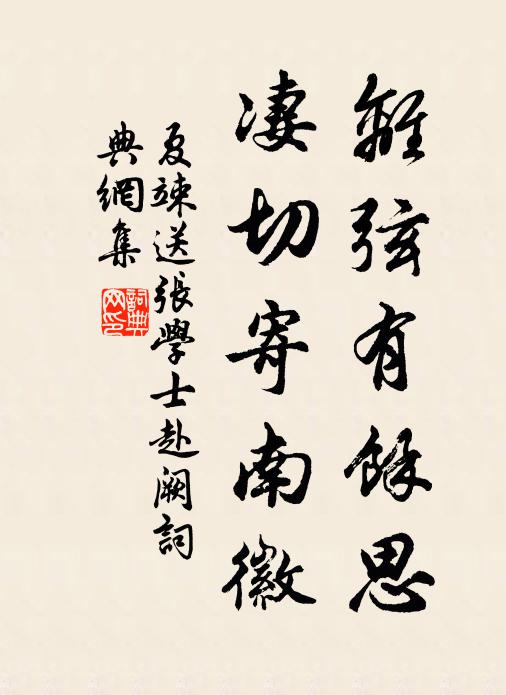 離弦有餘思
凄切寄南徽
夏竦送張學士赴闕詞
典網集
詞典
网印